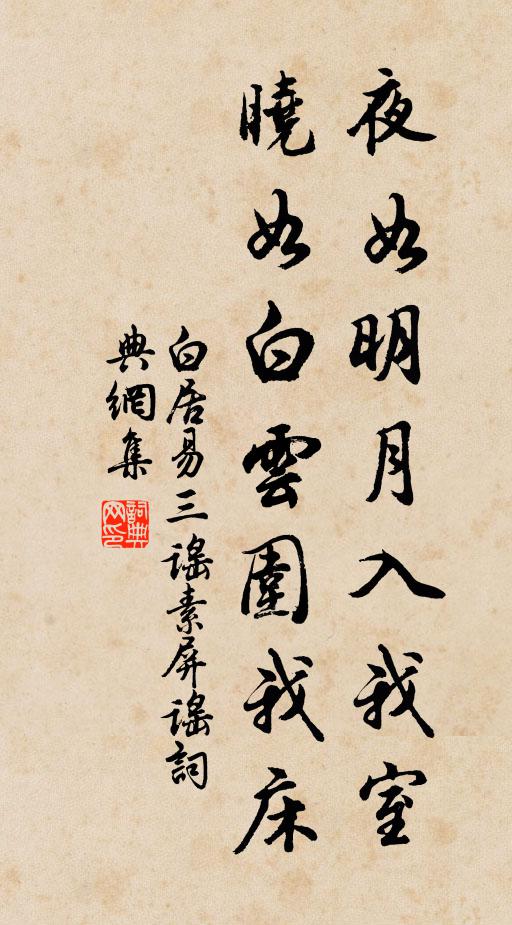 夜如明月入我室
曉如白雲圍我床
白居易三謠素屏謠詞
典網集
詞典網印